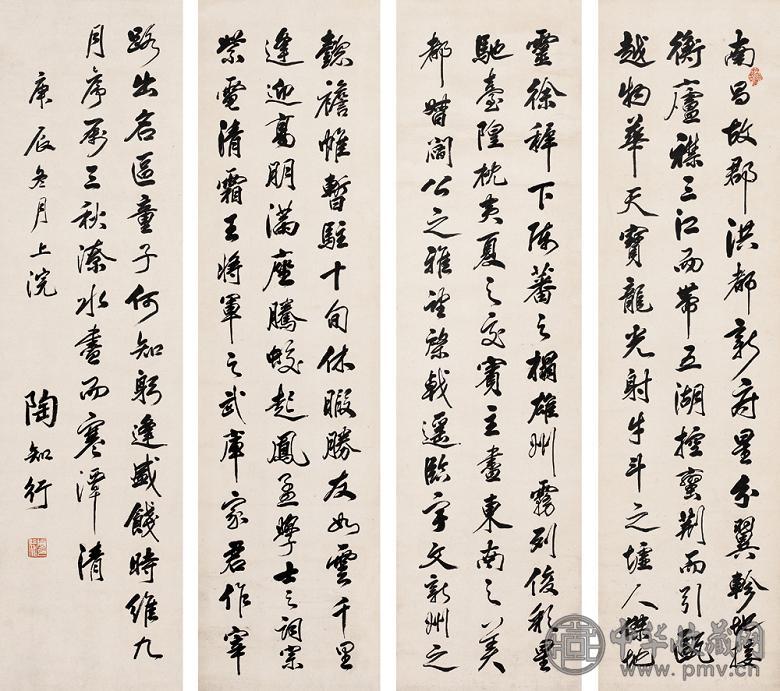 南昌故郡洪都新府星分翼軫地接
衡廬襟三江而帶五湖控蠻荊而引甌
越物華天寶龍光射牛斗之墟人傑地
靈徐稺下陳蕃之榻雄州霧列俊彩星
馳臺隍枕夷夏之交賓主盡東南之美
都督閻公之雅望棨戟遙臨宇文新州之
懿襜帷暫駐十旬休暇勝友如雲千里
逢迎高朋滿座騰蛟起鳳孟學士之詞宗
紫電清霜王將軍之武庫家君作宰
路出名區童子何知躬逢盛餞時維九
月序屬三秋潦水盡而寒潭清
庚辰冬月上浣
陶知行
中华收藏网
www.pmv.cn